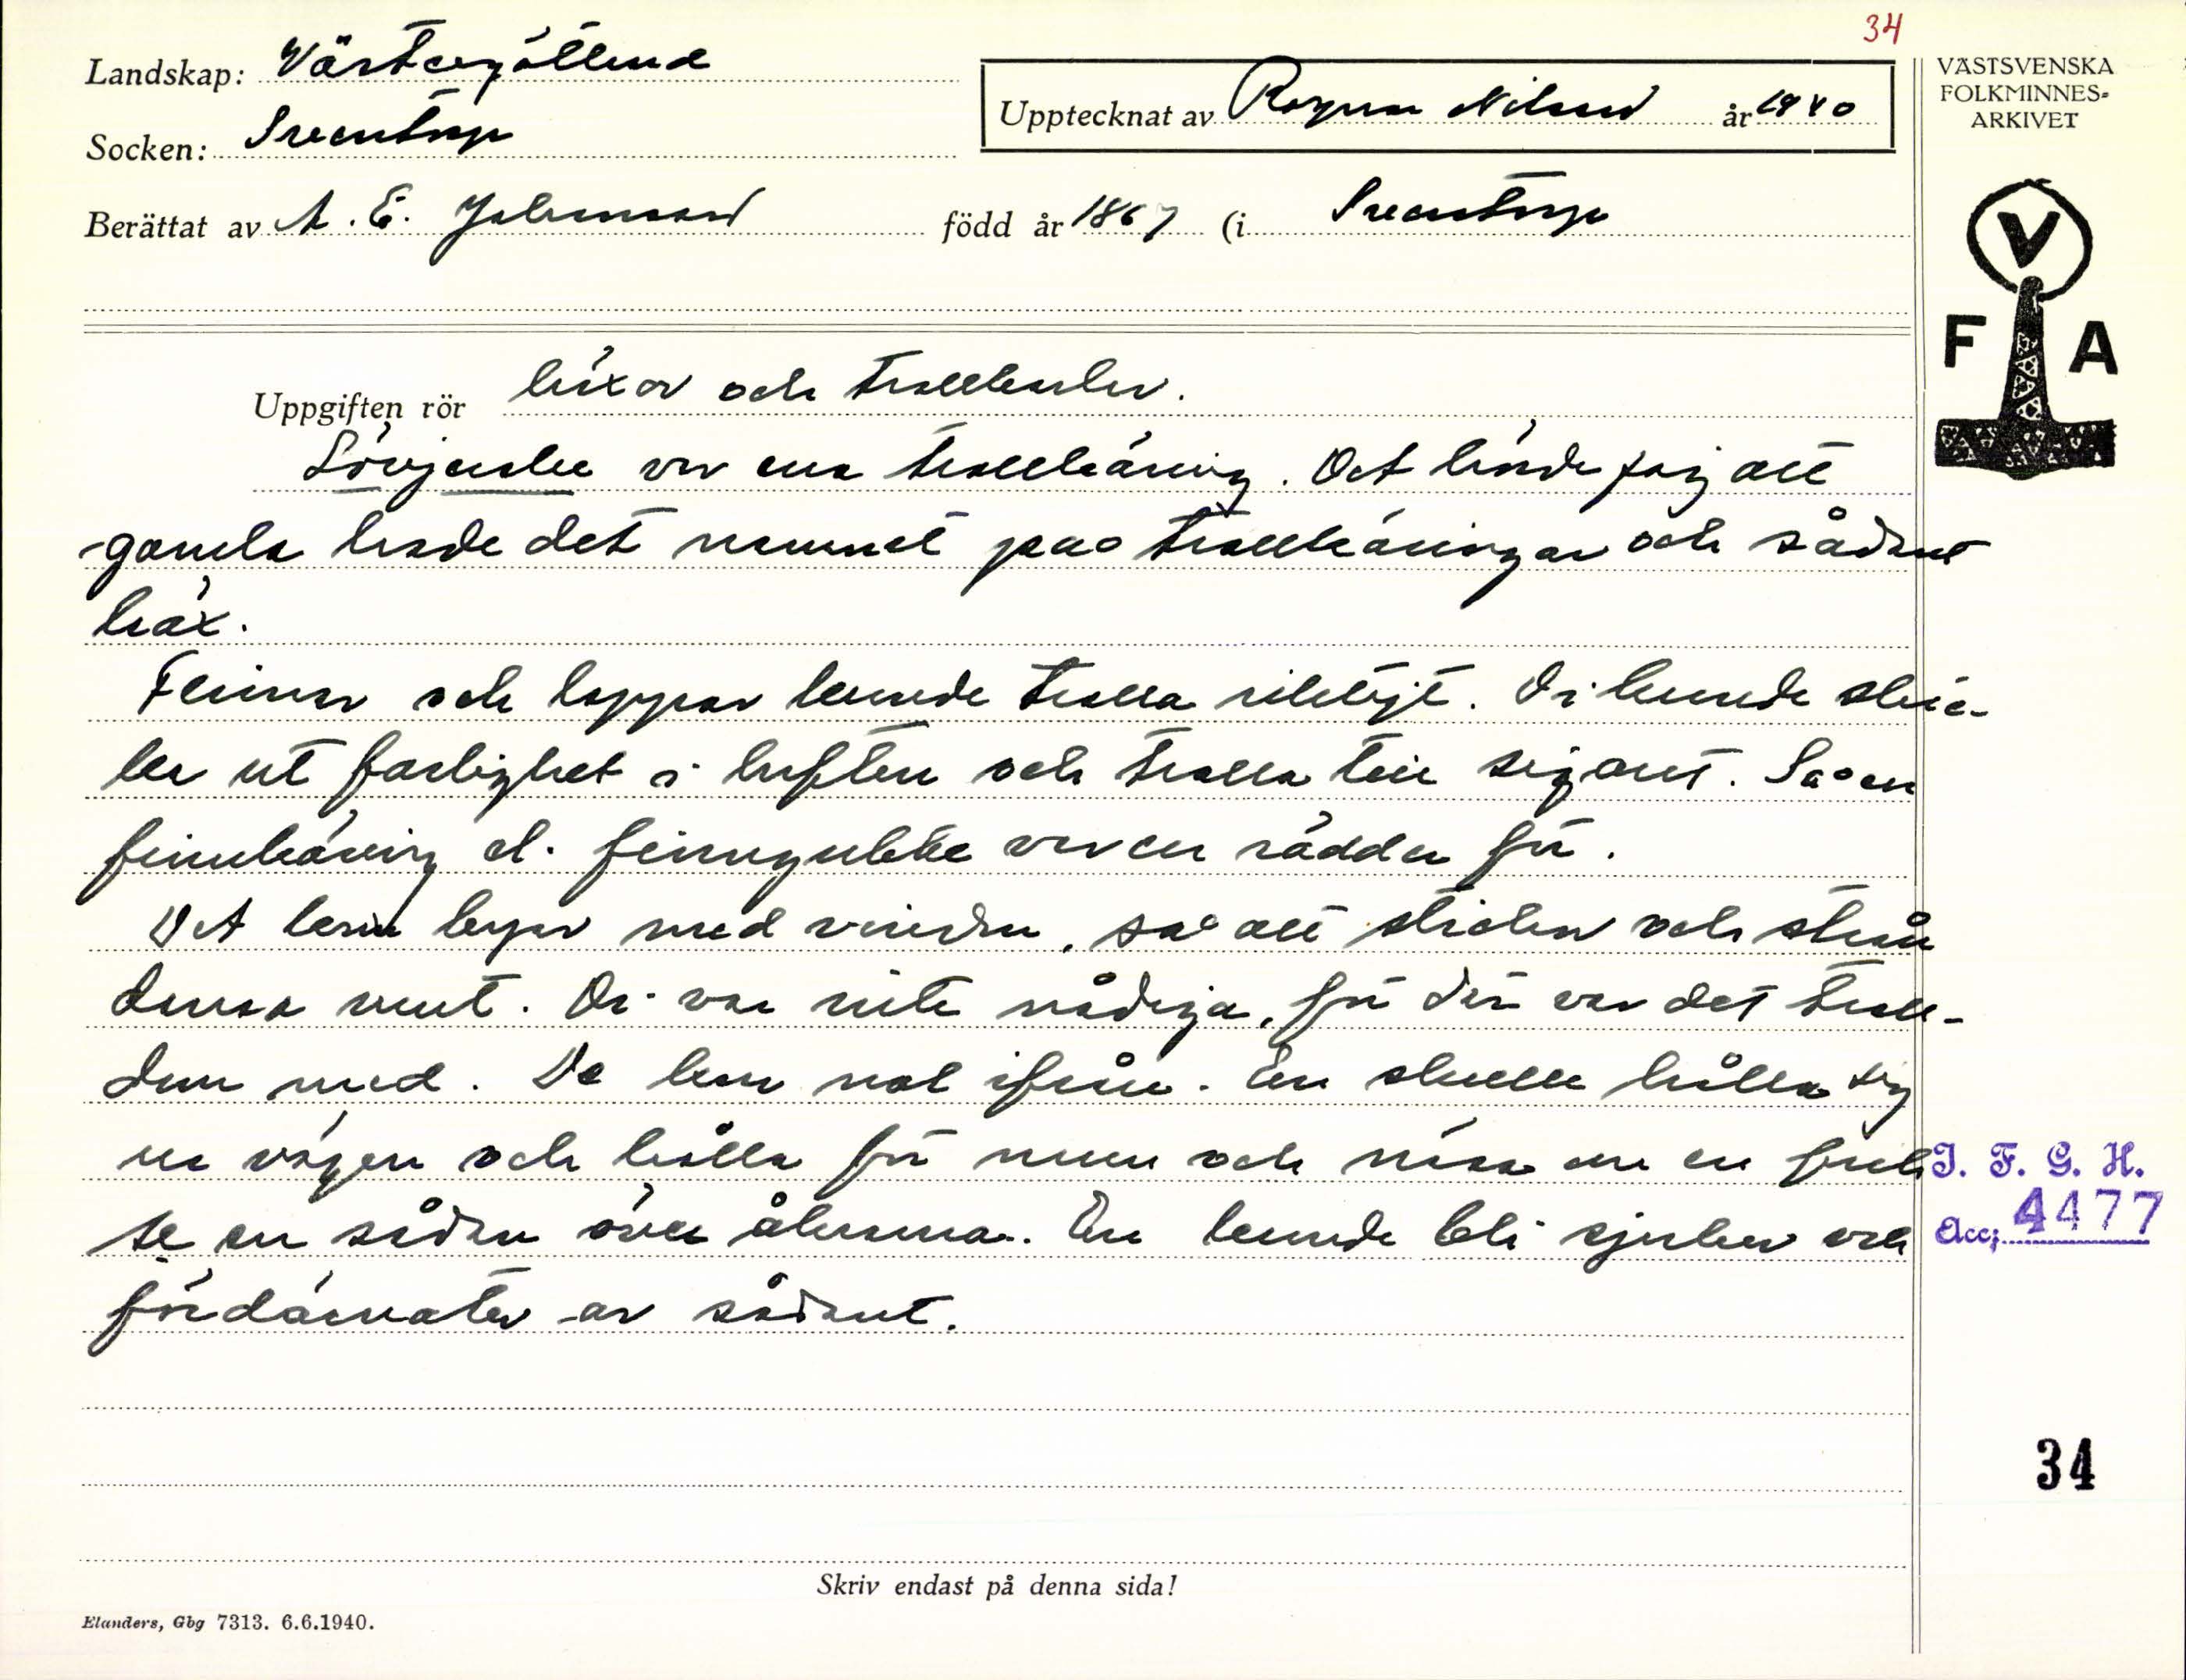 34
Landskap: Västergötland
Upptecknat av Ragnar Nilsson år 1940
VÄSTSVENSKA
FOLKMINNES-
ARKIVET
Socken: Sventorp
Berättat av A. E. Johansson född år 1867 (i Sventorp
V
F A
Uppgiften rör häxor och trollkarlar.
Lövjerska var ena trollkäring. Det hände sig att
gamla hade det namnet pao trollkäringar och sådant
häx.
Finnar och lappar kunde trolla riktigt. Di kunde skic-
ka ut farlighet i luften och trolla te sig ont. Sa° en
finnkäring el. finngubbe var en rädder för.
Det kom byar med vinden, sa° att stickor och strån
dansa runt. Di var inte nådiga, för där var det troll-
dom med. De kom nol ifrån. En skulle hålla sig
ur vägen och hålla för mun och näsa om en fick
se en sådan över åkrarna. En kunde bli sjuker och
fördärvater av sådant.
I. F. G. H.
Acc; 4477
34
Skriv endast på denna sida!
Elanders, Gbg 7313. 6.6.1940.